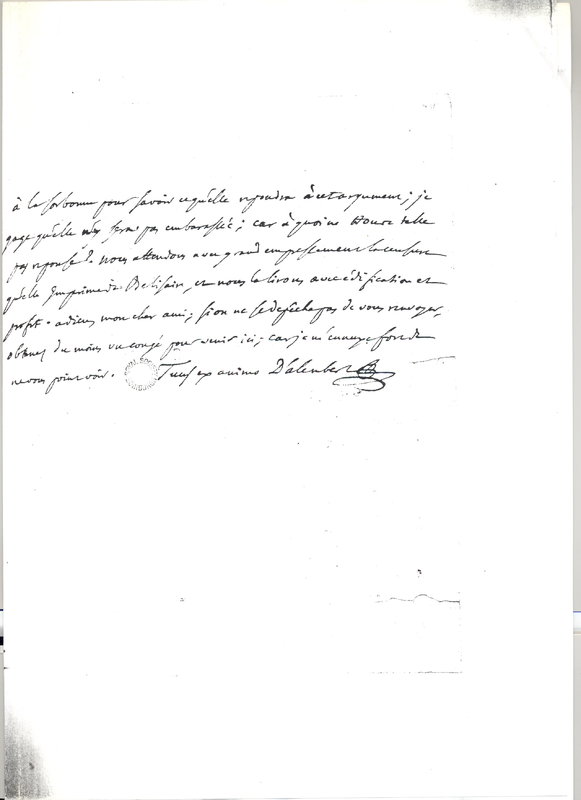 à la sorbonne pour savoir ce qu'elle repondra à cet argument; je
gage qu'elle n'en sera pas embarassée; car à quoi ne trouve t'elle
pas reponse? nous attendons avec grand empressement la censure
qu'elle imprime de Belisaire, et nous la lirons avec edification et
profit. adieu mon cher ami; si on ne se depêche pas de vous renvoyer,
obtenez du moins un congé pour venir ici; car je m'ennuye fort de
ne vous point voir. Tuus ex animo D'alembert